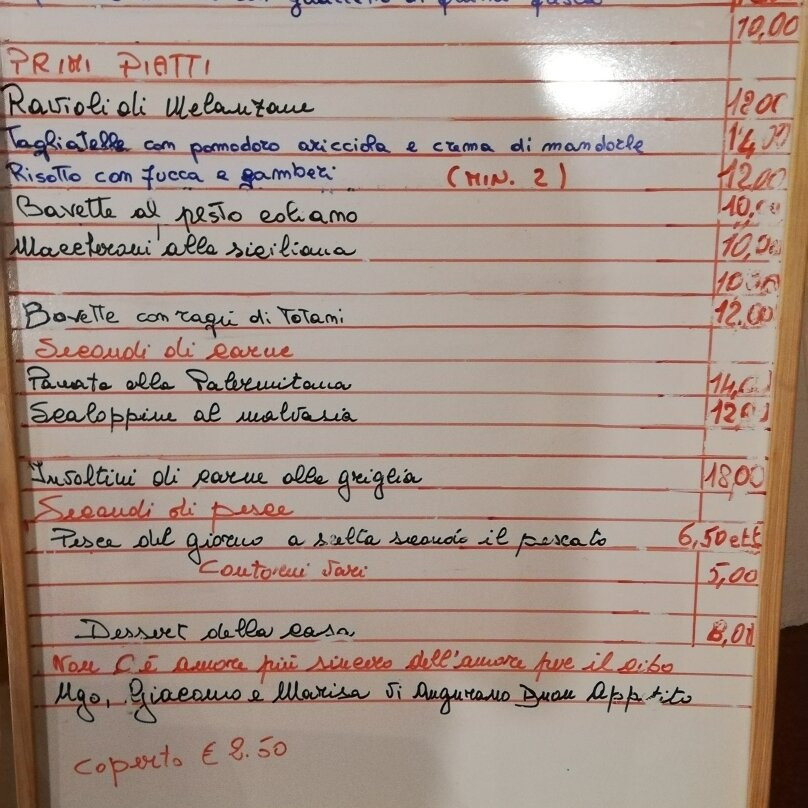 10,00
PRIMI PIATTI
Ravioli di Melanzane 12,00
Tagliatelle con pomodoro aricciola e crema di mandorle 14,00
Risotto con zucca e gamberi (MIN. 2) 12,00
Bavette al pesto eoliano 10,00
Maccheroni alla siciliana 10,00
10,00
Bavette con ragù di Totani 12,00
Secondi di carne
Panata alla Palermitana 14,00
Scaloppine al malvasia 12,00
Involtini di carne alla griglia 18,00
Secondi di pesce
Pesce del giorno a scelta secondo il pescato 6,50 ett
Contorni vari 5,00
Dessert della casa
Non c'è amore più sincero dell'amore per il cibo
Ugo, Giacomo e Marisa Vi Augurano Buon Apptito
coperto € 2.50